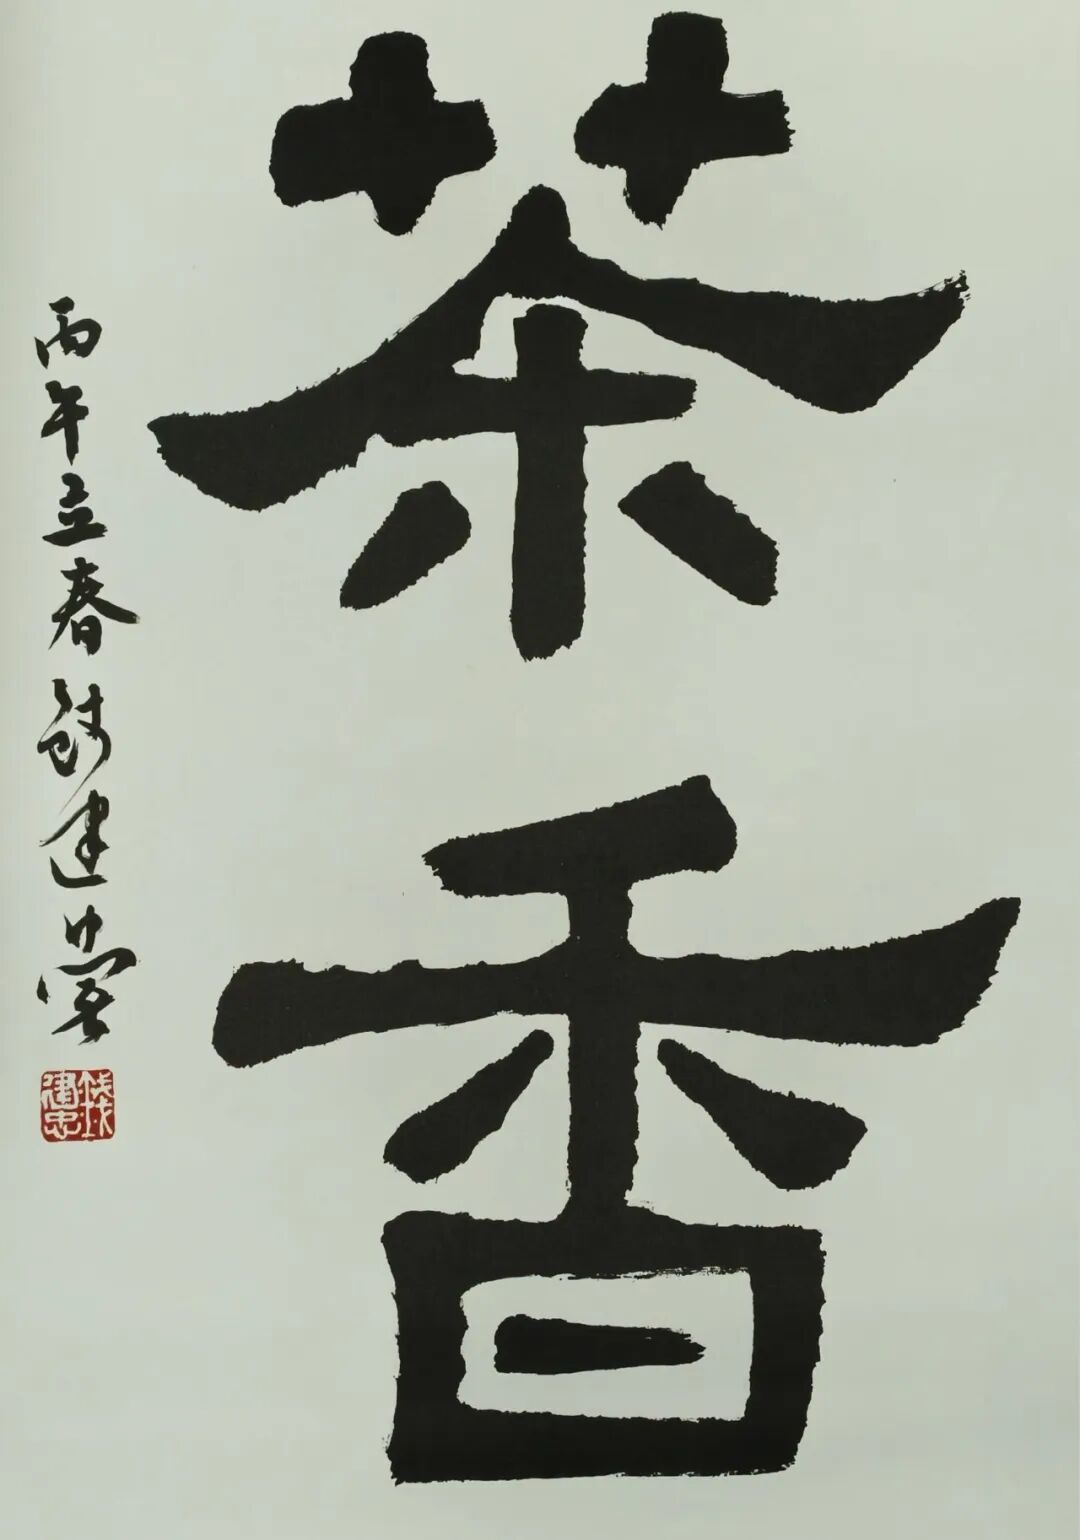 茶香
丙午立春钱建忠書
钱建忠